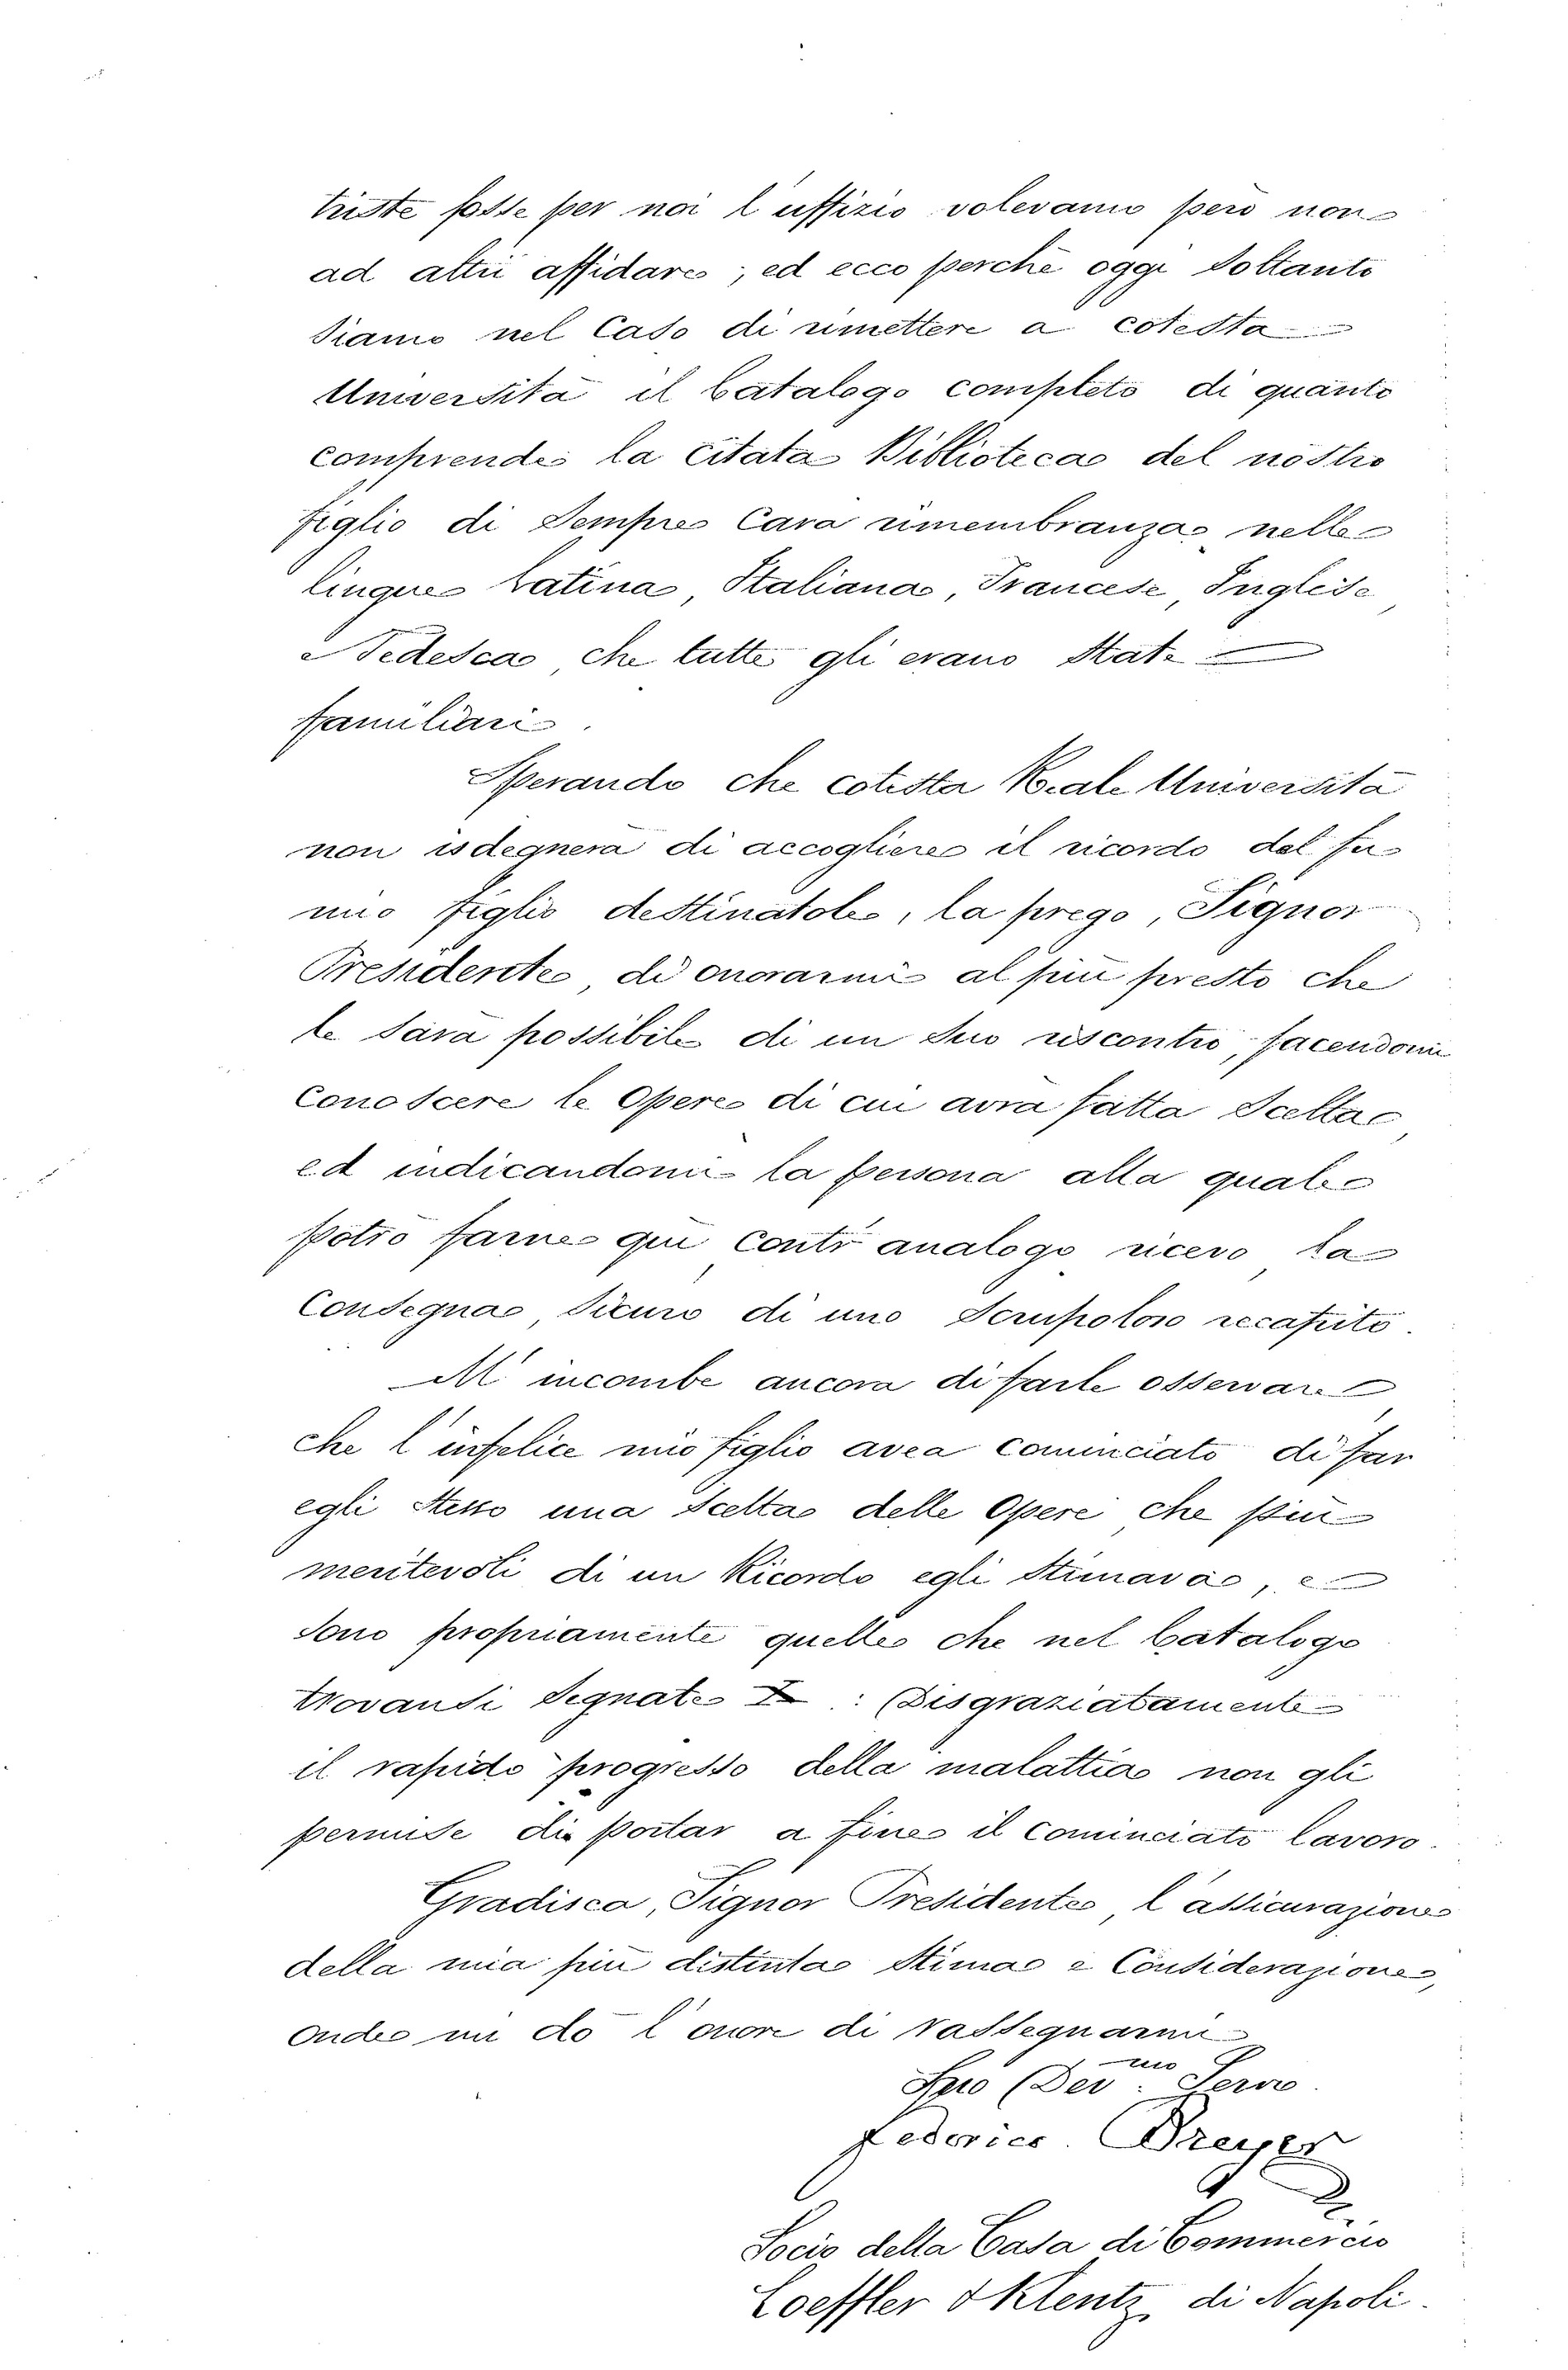 triste fosse per noi l'uffizio volevamo però non
ad altri affidare, ed ecco perchè oggi soltanto
siamo nel caso di rimettere a cotesta
Università il Catalogo completo di quanto
comprende la citata Biblioteca del nostro
figlio di sempre cara rimembranza nelle
lingue Latina, Italiana, Francese, Inglese
e Tedesca, che tutte gli erano state
familiari.
Sperando che cotesta Reale Università
non isdegnerà di accogliere il ricordo del fu
mio figlio destinatole, la prego, Signor
Presidente, di onorarmi al più presto che
le sarà possibile di un suo riscontro, facendomi
conoscere le Opere di cui avrà fatta scelta,
ed indicandomi la persona alla quale
potrò farne qui contr'analogo ricevo, la
consegna, sicuro di uno scrupoloso recapito.
M'incombe ancora di farle osservare,
che l'infelice mio figlio avea cominciato di far
egli stesso una scelta delle Opere, che più
meritevoli di un Ricordo egli stimava, e
sono propriamente quelle che nel Catalogo
trovansi segnate X : Disgraziatamente
il rapido progresso della malattia non gli
permise di portar a fine il cominciato lavoro.
Gradisca, Signor Presidente, l'assicurazione
della mia più distinta stima e considerazione,
onde mi do l'onore di rassegnarmi
Suo Dev.mo Servo
Federico Dreyer
Socio della Casa di Commercio
Loeffler & Klentz, di Napoli.